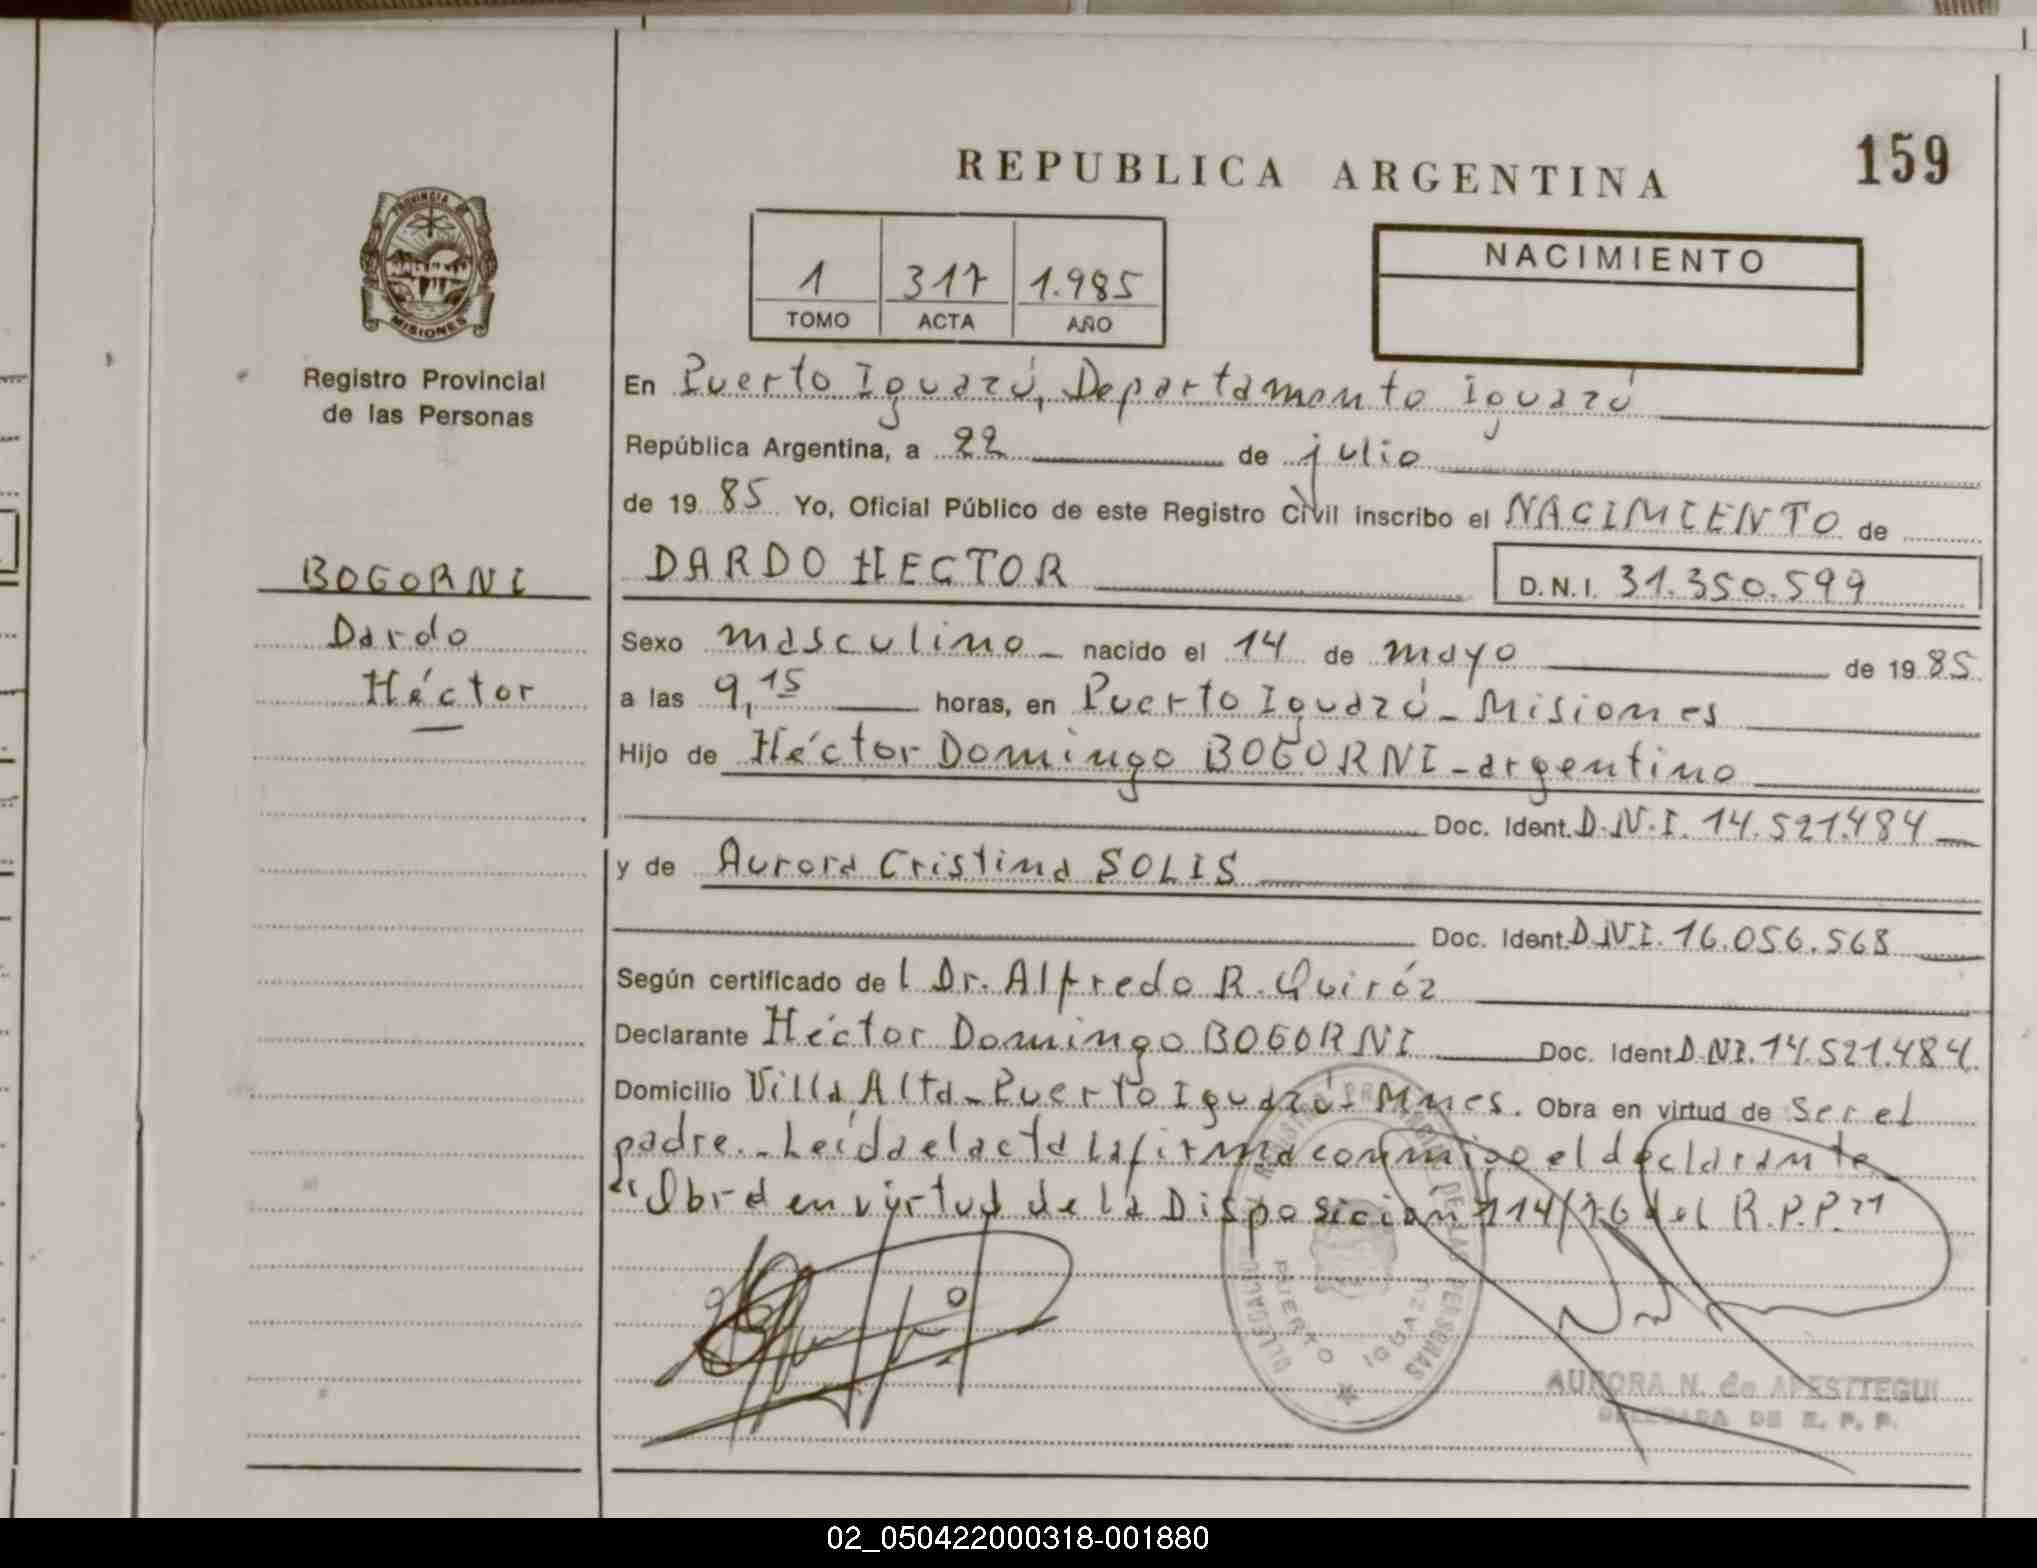 REPUBLICA ARGENTINA
159
PROVINCIA DE
MISIONES
Registro Provincial
de las Personas
1 317 1.985
TOMO ACTA AÑO
NACIMIENTO
En Puerto Iguazú, Departamento Iguazú
República Argentina, a 22 de julio
de 1985 Yo, Oficial Público de este Registro Civil inscribo el NACIMIENTO de
BOGORNI
Dardo
Héctor
DARDO HECTOR D.N.I. 31.350.599
Sexo masculino nacido el 14 de mayo de 1985
a las 9,15 horas, en Puerto Iguazú - Misiones
Hijo de Héctor Domingo BOGORNI - argentino
Doc. Ident. D.N.I. 14.521.484
y de Aurora Cristina SOLIS
Doc. Ident. D.N.I. 16.056.568
Según certificado del Dr. Alfredo R. Quiróz
Declarante Héctor Domingo BOGORNI Doc. Ident D.NI. 14.521.484
Domicilio Villa Alta - Puerto Iguazú - Mnes. Obra en virtud de Ser el
padre. - Leída el acta la firma conmigo el declarante
"Obra en virtud de la Disposición 114/76 del R.P.P."
DE LAS PERSONAS
PUERTO IGUAZU
AURORA N. de APESTTEGUI
DELEGADA DE R. P. P.
02_050422000318-001880